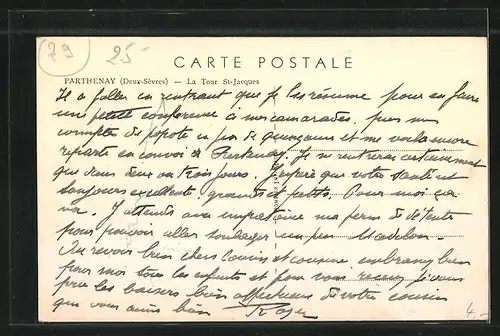 79
25
CARTE POSTALE
PARTHENAY (Deux-Sèvres) — La Tour St-Jacques
Il a fallu en rentrant que je les résume pour en faire
une petite conférence à mes camarades, puis mes
comptes de popote en peu de et me voila encore
reparti en convoi à Partenay. Je ne rentrerai certainement
que dans deux ou trois jours. J'espère que votre santé est
toujours excellente, grands et petits. Pour moi ça
va. J'attends avec impatience ma perm de détente
pour pouvoir aller soulager un peu Madelon.
Au revoir bien chers Cousin et cousine embrassez bien
pour moi tous les enfants et pour vous recevez je vous
prie les baisers bien affectueux de votre cousin
que vous aime bien Roger
4.-